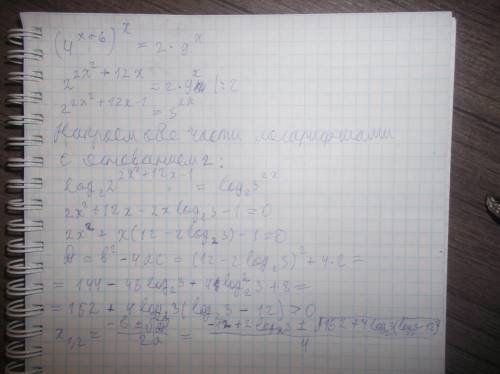 (4^{x+6})^x = 2 · 9^x
2^{2x²+12x} = 2 · 9^x |:2
2^{2x²+12x-1} = 3^{2x}
обе части логарифмами
с основанием 2:
log₂2^{2x²+12x-1} = log₂3^{2x}
2x²+12x-2xlog₂3-1=0
2x²+x(12-2log₂3)-1=0
D = b²-4ac = (12-2log₂3)²+4·2=
= 144-48log₂3+4log₂²3+8=
= 152+4log₂3(log₂3-12)>0